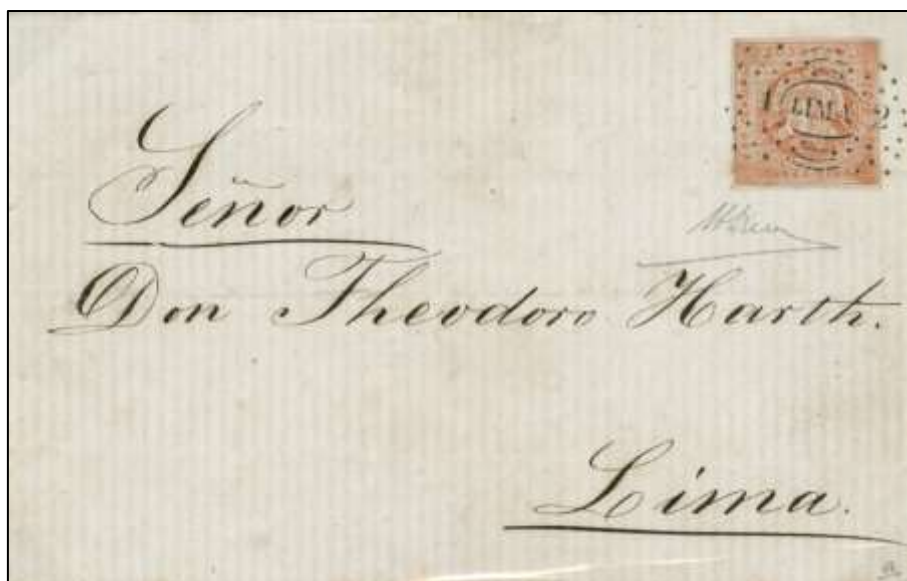 1 LIMA 2
Señor
Don Theodoro Harth.
Lima.